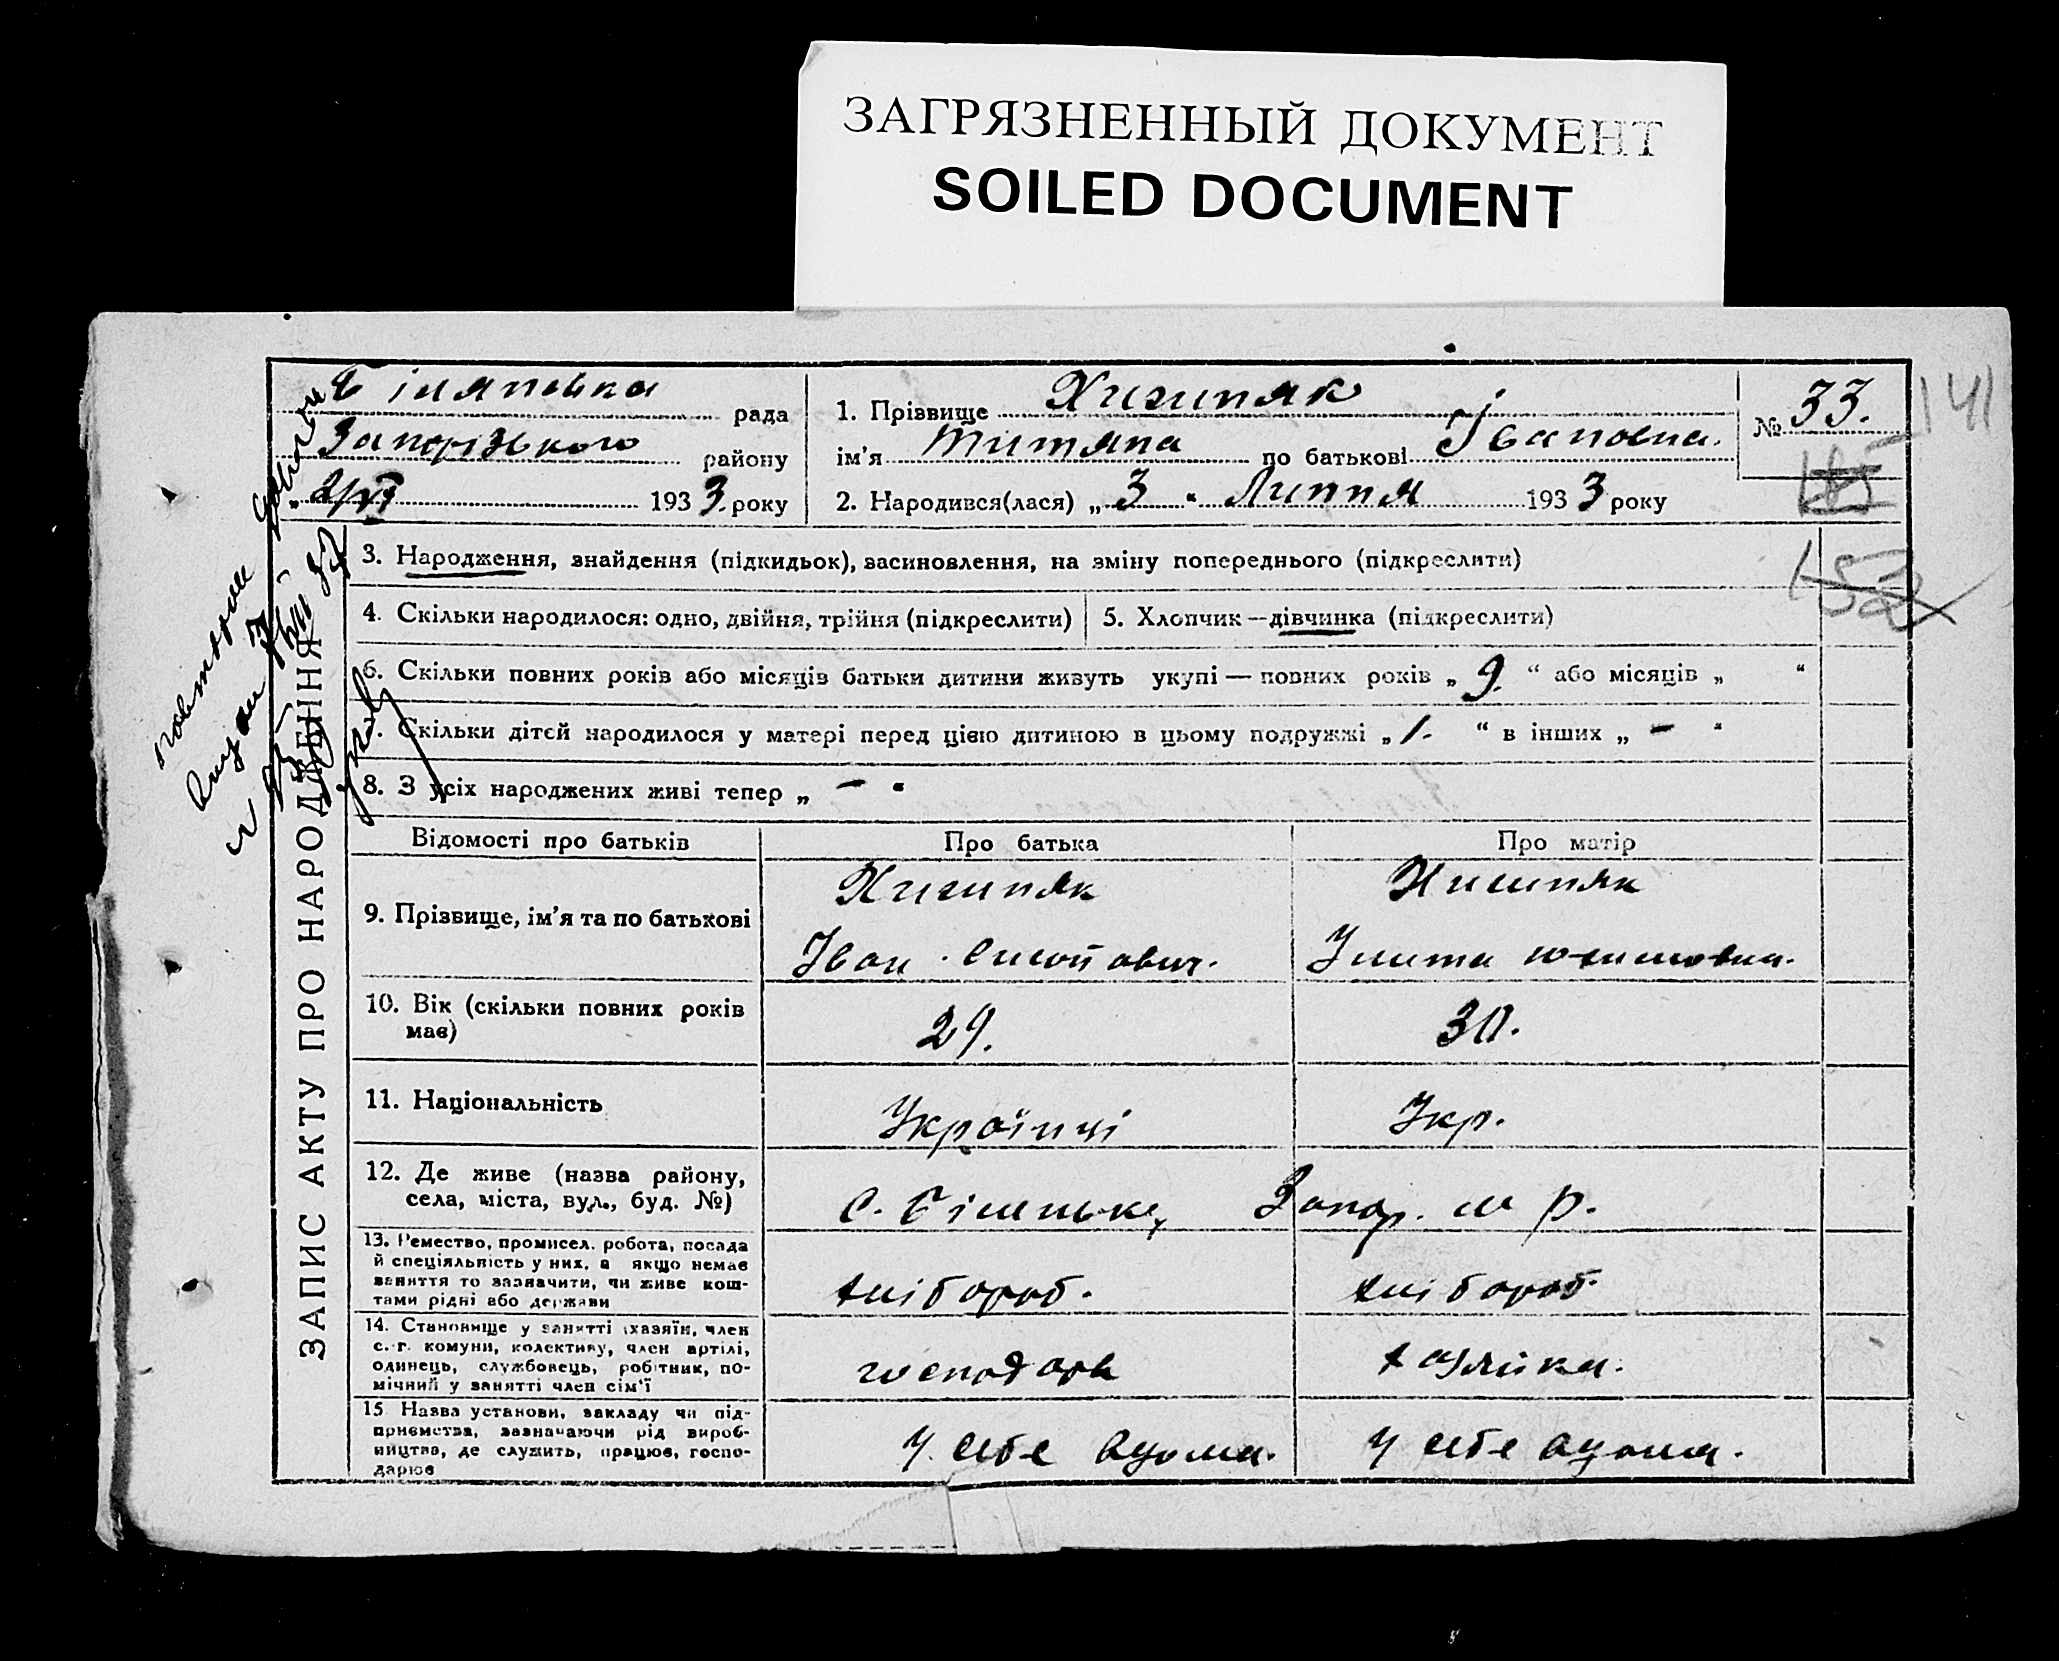 ЗАГРЯЗНЕННЫЙ ДОКУМЕНТ
SOILED DOCUMENT
рада
Запорізького району
193 3 року
1. Прізвище
№ 33.
141
ім'я Титяна по батькові Івановна.
2. Народився(лася) „ 3 “ Липня 193 3 року
185
152
ЗАПИС АКТУ ПРО НАРОДЖЕННЯ
3. Народження, знайдення (підкидьок), засиновлення, на зміну попереднього (підкреслити)
4. Скільки народилося: одно, двійня, трійня (підкреслити)
5. Хлопчик — дівчинка (підкреслити)
6. Скільки повних років або місяців батьки дитини живуть укупі — повних років „ 9. “ або місяців „ “
7. Скільки дітей народилося у матері перед цією дитиною в цьому подружжі „ 1. “ в інших „ – “
8. З усіх народжених живі тепер „ – “
Відомості про батьків
Про батька
Про матір
9. Прізвище, ім'я та по батькові
Іван
10. Вік (скільки повних років
має)
29.
30.
11. Національність
Українці
Укр.
12. Де живе (назва району,
села, міста, вул., буд. №)
с. Біленьке, Запор. р.
13. Ремество, промисел. робота, посада
й спеціяльність у них, а якщо немає
заняття то зазначити, чи живе кош-
тами рідні або держави
хлібороб.
хлібороб
14. Становище у занятті (хазяїн, член
с.-г. комуни, колективу, член артілі,
одинець, службовець, робітник, по-
мічний у занятті член сім'ї
господарь
хазяйка.
15 Назва установи, закладу чи під-
приємства, зазначаючи рід вироб-
ництва, де служить, працює, госпо-
дарює
у себе вдома.
у себе вдома.